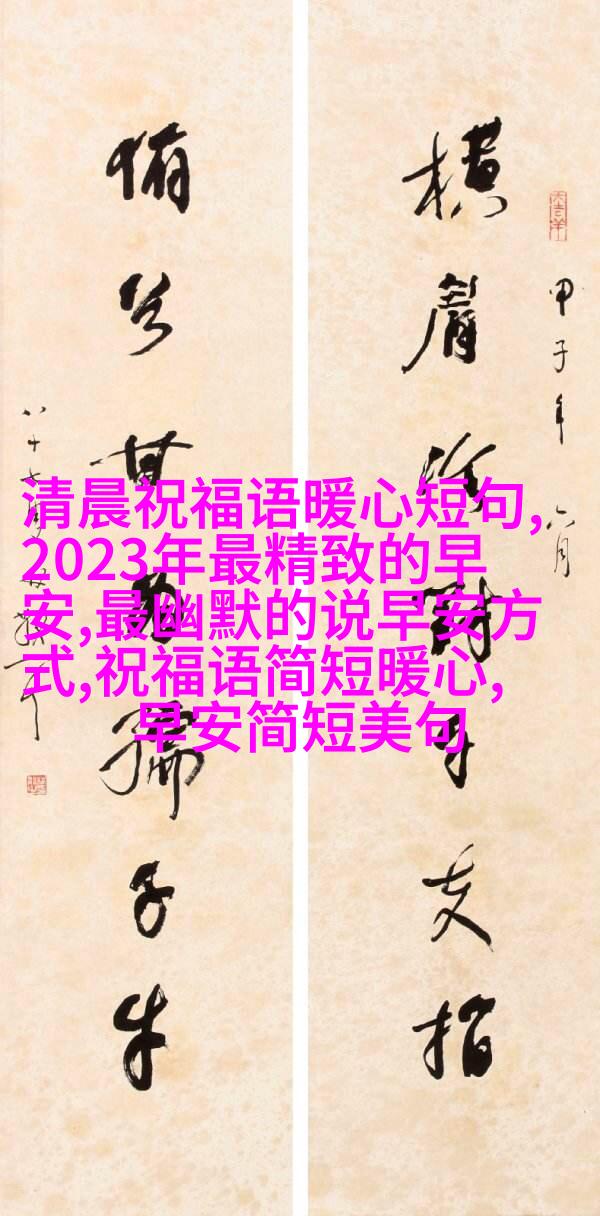 横眉冷對千夫指
甲子年六月
俯首甘為孺子牛
八十七
清晨祝福语暖心短句,
2023年最精致的早
安,最幽默的说早安方
式,祝福语简短暖心,
早安简短美句